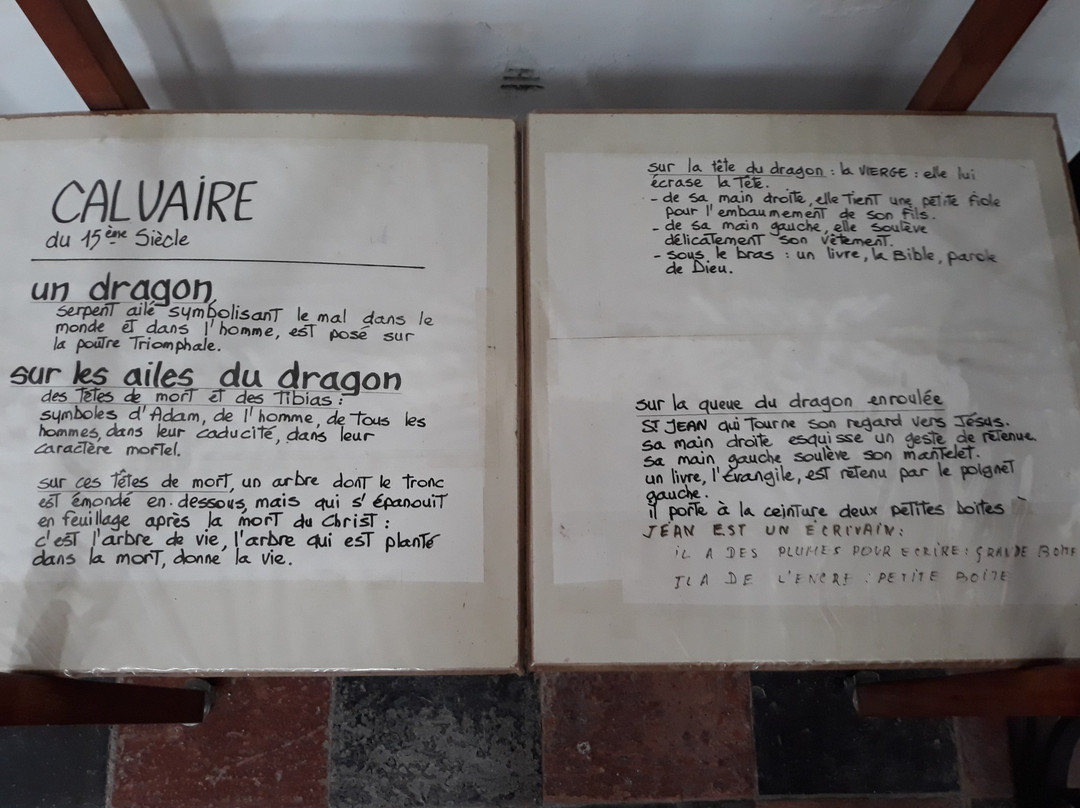 CALVAIRE
du 15ème Siècle
un dragon
serpent ailé symbolisant le mal dans le
monde et dans l'homme, est posé sur
la poutre Triomphale.
sur les ailes du dragon
des têtes de mort et des Tibias :
symboles d'Adam, de l'homme, de tous les
hommes, dans leur caducité, dans leur
caractère mortel.
sur ces têtes de mort, un arbre dont le tronc
est émondé en-dessous, mais qui s'épanouit
en feuillage après la mort du Christ :
c'est l'arbre de vie, l'arbre qui est planté
dans la mort, donne la vie.
sur la tête du dragon : la VIERGE : elle lui
écrase la Tête.
- de sa main droite, elle Tient une petite fiole
pour l'embaumement de son fils.
- de sa main gauche, elle soulève
délicatement son vêtement.
- sous le bras : un livre, la Bible, parole
de Dieu.
sur la queue du dragon enroulée
ST JEAN qui Tourne son regard vers Jésus.
sa main droite esquisse un geste de retenue.
sa main gauche soulève son mantelet.
un livre, l'Évangile, est retenu par le poignet
gauche.
il porte à la ceinture deux petites boites
JEAN EST UN ECRIVAIN :
IL A DES PLUMES POUR ECRIRE : GRANDE BOITE
IL A DE L'ENCRE : PETITE BOITE